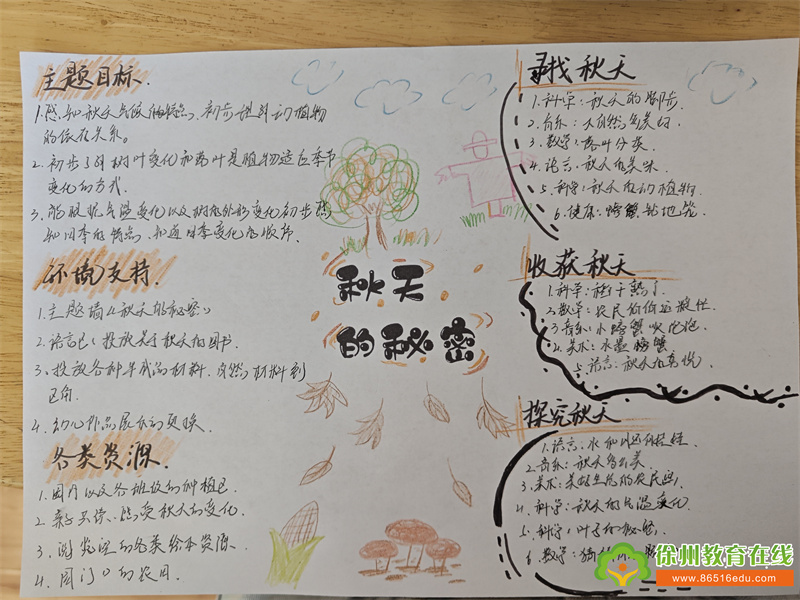 主题目标.
1.感知秋天气候的特点,初步理解动植物
的依存关系。
2.初步了解树叶变化和落叶是植物适应季节
变化的方式.
3.能根据气温变化以及树的外形变化初步感
知四季的特点,知道四季变化的顺序.
环境支持.
1.主题墙《秋天的秘密》
2.语言区:投放关于秋天的图书.
3.投放各种半成的材料、自然材料到
区角.
4.幼儿作品展示的更换.
各类资源.
1.园内以及各班级的种植区.
2.亲子共读、感受秋天的变化.
3.浏览室的各类绘本资源.
4.园门口的农田.
秋天
的秘密
寻找秋天
1.科学:秋天的脚步.
2.音乐:大自然
3.数学:落叶分类.
4.语言:秋天的美味
5.科学:秋天的动植物
6.健康:螃蟹钻地笼.
收获秋天
1.科学:稻子熟了.
2.数学:农民伯伯运粮忙.
3.音乐:小螃蟹吹泡泡
4.美术:水墨螃蟹
5.语言:秋天的
探究秋天
1.语言:
2.音乐:秋天多么美.
3.美术:
4.科学:秋天的气温变化.
5.科学:叶子的秘密.
6.数学:
徐州教育在线
www.86516edu.com